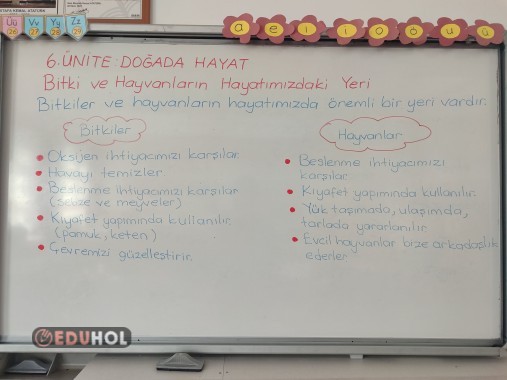 Üü Vv Yy Zz
26 27 28 29
a e ı i o ö u ü
6.ÜNİTE: DOĞADA HAYAT
Bitki ve Hayvanların Hayatımızdaki Yeri
Bitkiler ve hayvanların hayatımızda önemli bir yeri vardır.
Bitkiler
Oksijen ihtiyacımızı karşılar.
Havayı temizler.
Beslenme ihtiyacımızı karşılar
(sebze ve meyveler)
Kıyafet yapımında kullanılır.
(pamuk, keten)
Çevremizi güzelleştirir.
Hayvanlar
Beslenme ihtiyacımızı
karşılar.
Kıyafet yapımında kullanılır.
Yük taşımada, ulaşımda,
tarlada yararlanılır
Evcil hayvanlar bize arkadaşlık
ederler
EDUHOL